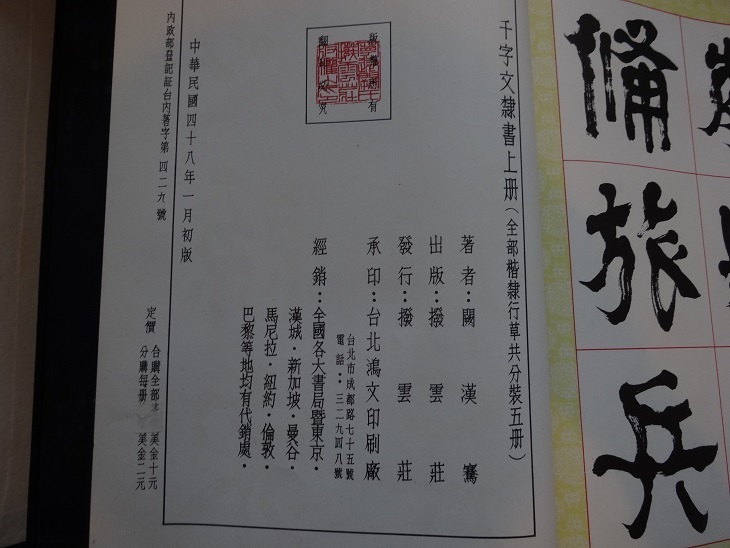 千字文隸書上册(全部楷隸行草共分裝五册)
著者：闕漢騫
出版：撥雲莊
發行：撥雲莊
承印：台北鴻文印刷廠
台北市成都路七十五號
電話：三二九四八號
經銷：全國各大書局暨東京·
漢城·新加坡·曼谷·
馬尼拉·紐約·倫敦·
巴黎等地均有代銷處·
版權所有
翻印必究
中華民國四十八年一月初版
內政部登記証台內著字第四二九號
定價 合購全部 美金十元
分購每册 美金二元
備
旅
兵